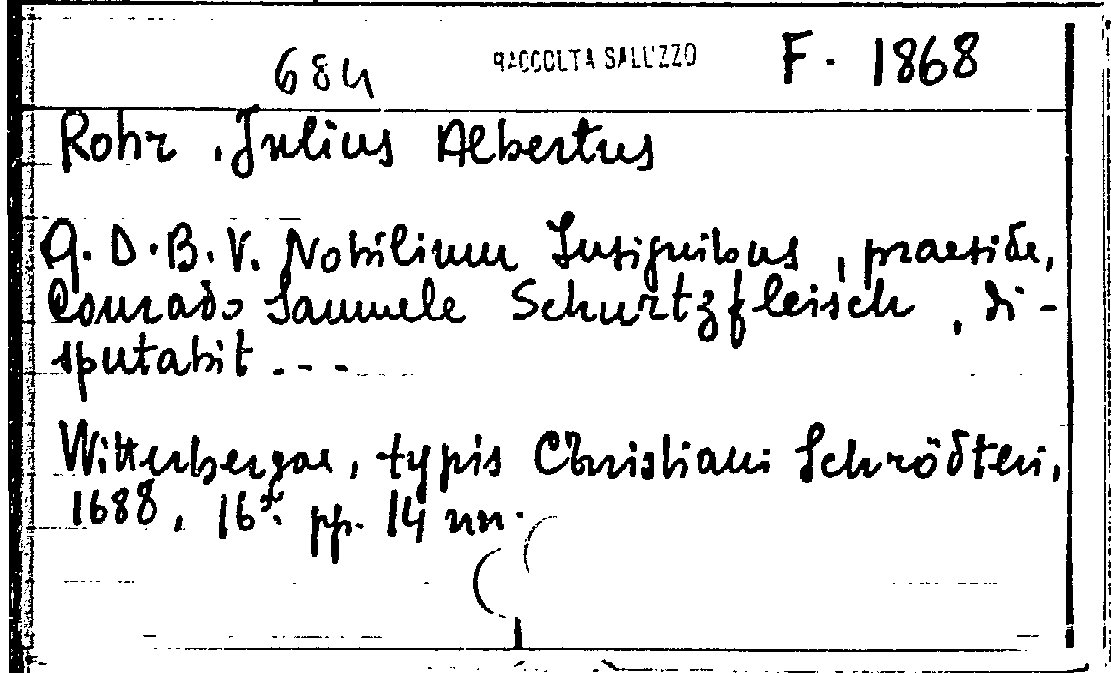 684 RACCOLTA SALUZZO F. 1868
Rohr, Julius Albertus
Q. D. B. V. Nobilium Insignibus, praeside,
Conrado Samuele Schurtzfleisch, di-
sputabit ---
Wittenbergae, typis Christiani Schrödteri,
1688, 16°. pp. 14 nn.